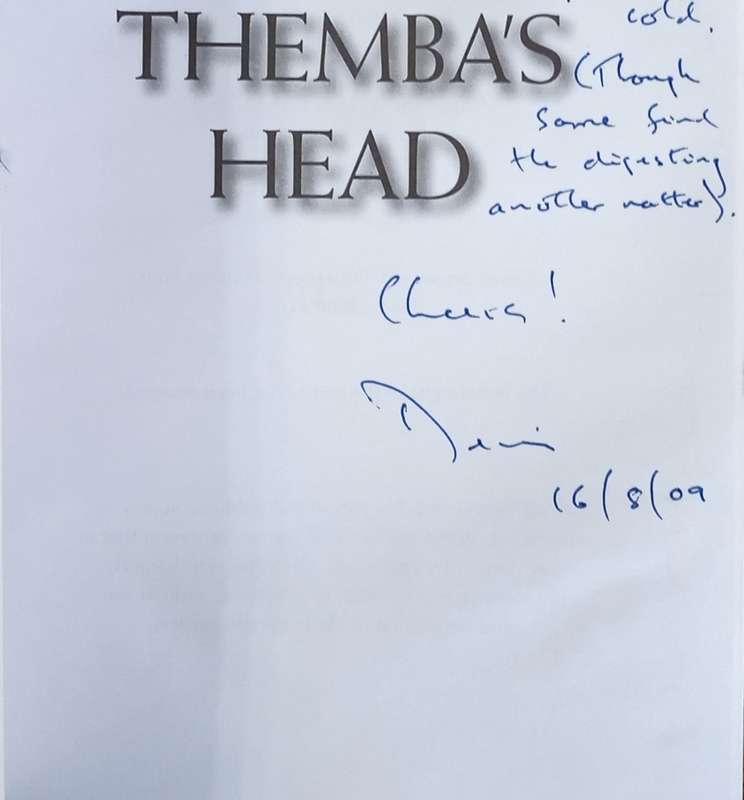 THEMBA'S
HEAD
cold.
(Though
some find
the digesting
another matter).
Cheers!
16/8/09